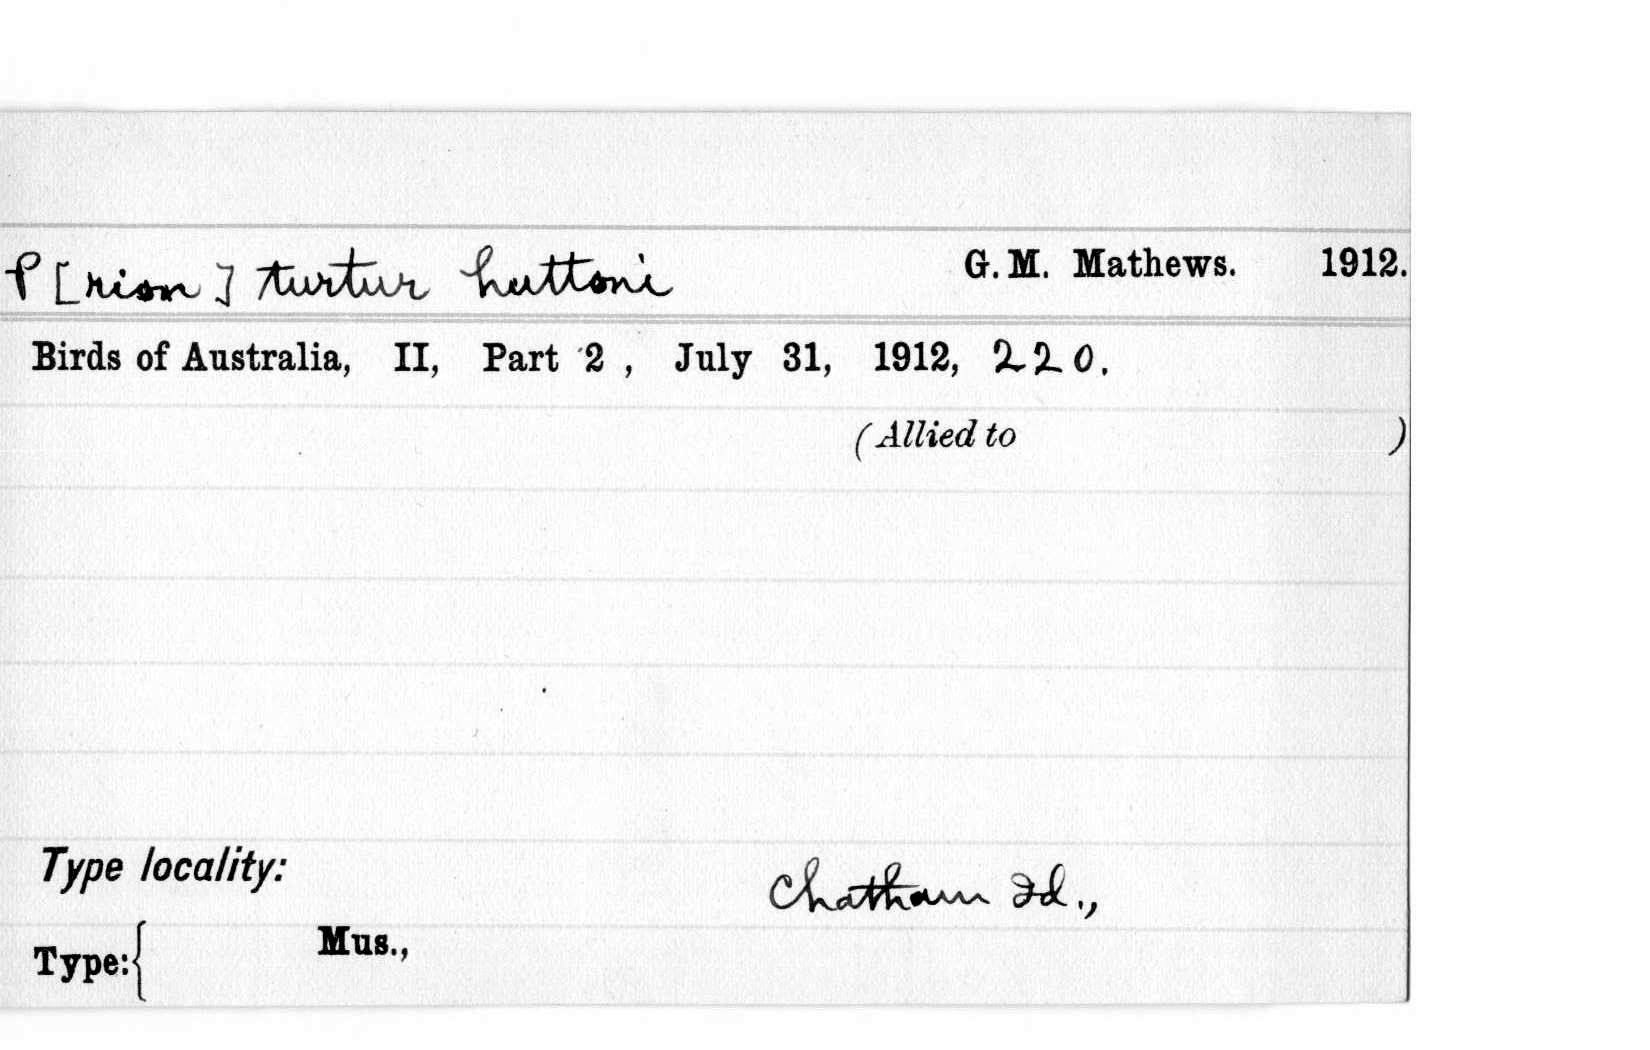 P[rion] turtur huttoni G. M. Mathews. 1912.
Birds of Australia, II, Part 2 , July 31, 1912, 220.
(Allied to )
Type locality: Chatham Id.,
Type:{ Mus.,